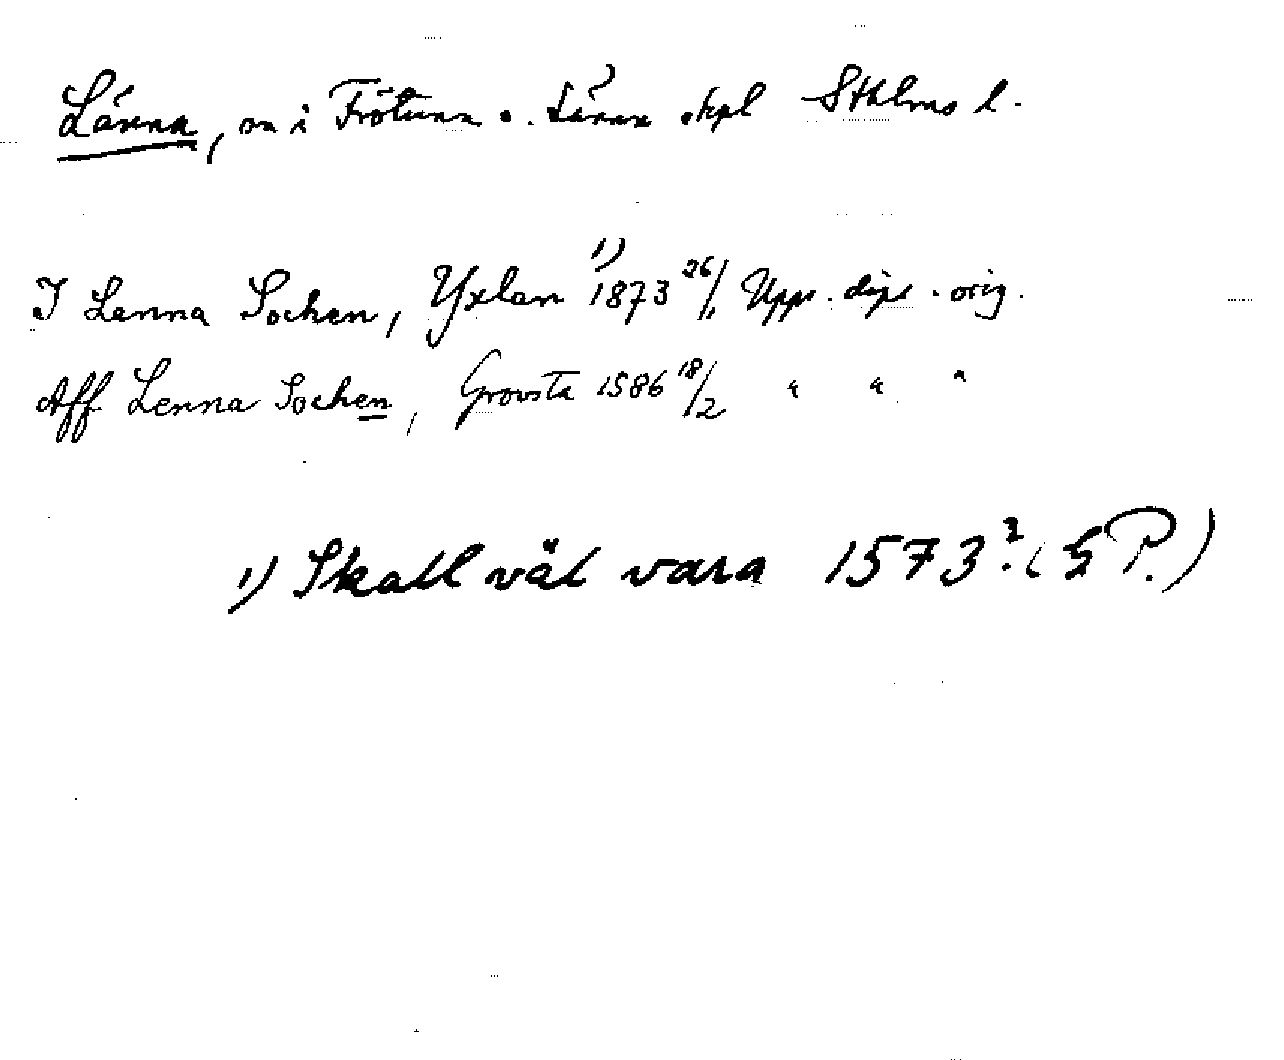 Länna, sn i Frötuna o. Länna skpl Sthlms l.
I Lenna Sochen, Yxlan 1) 1873 26/1 Upps. dipl. orig.
Aff Lenna Sochen, Growsta 1586 18/2 " " "
1) Skall väl vara 1573?. (G P.)